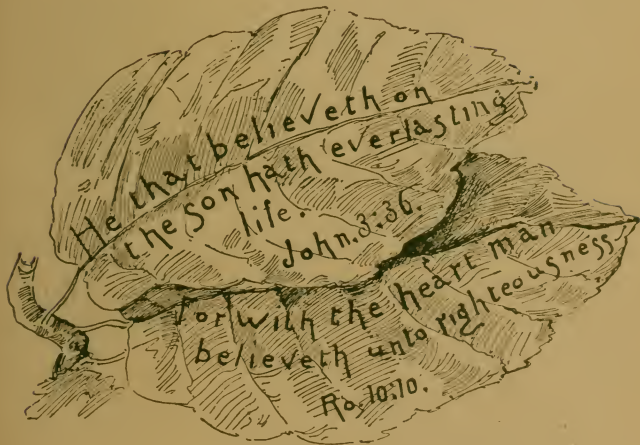 He that believeth on
the Son hath everlasting
life.
John.3:36.
For with the heart man
believeth unto righteousness
Ro.10:10.